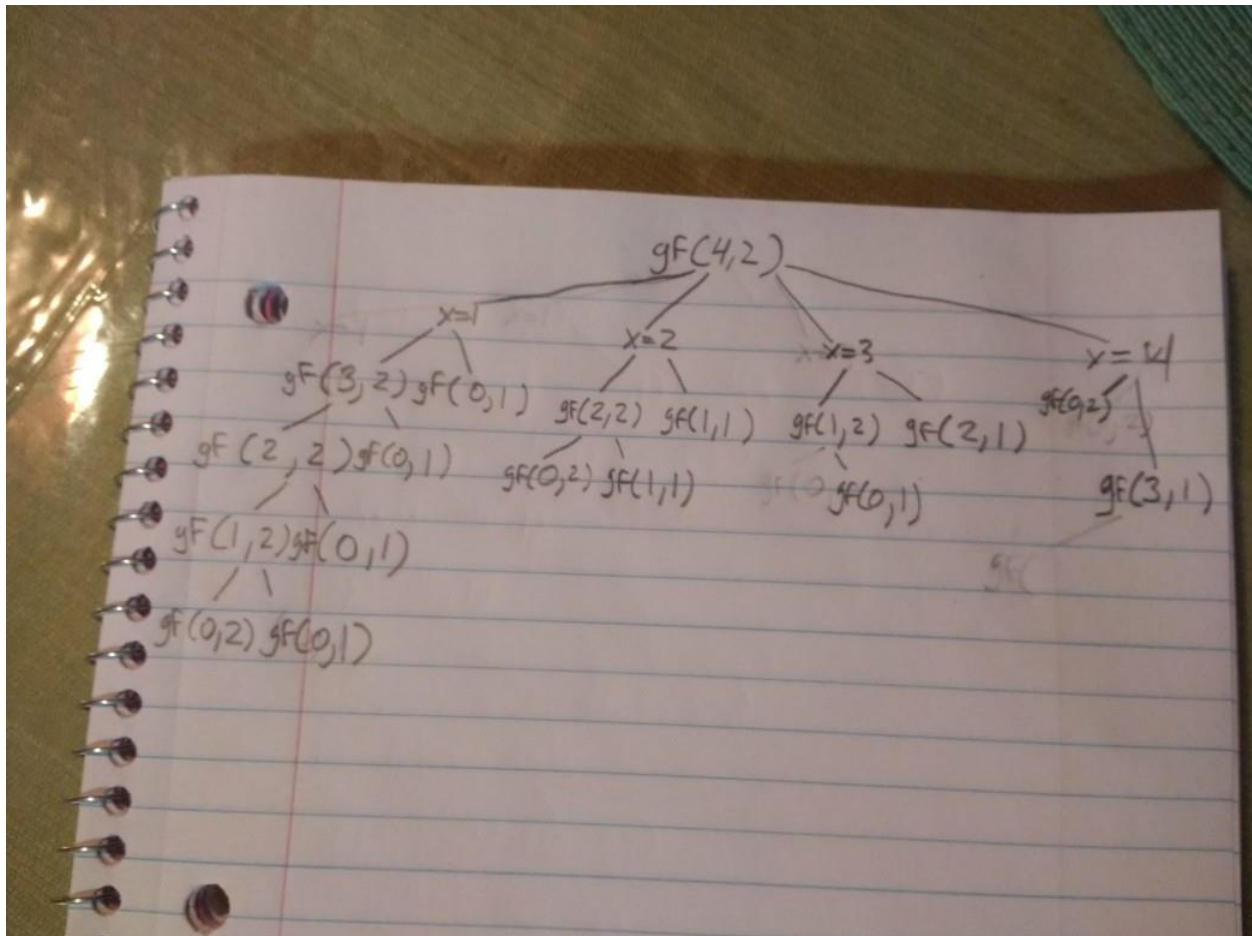 gF(4,2)
x=1 x=2 x=3 x=4
gF(3,2) gF(0,1) gF(2,2) gF(1,1) gF(1,2) gF(2,1) gF(0,2)
gF(2,2) gF(0,1) gF(0,2) gF(1,1) gF(0,1) gF(3,1)
gF(1,2) gF(0,1)
gF(0,2) gF(0,1)